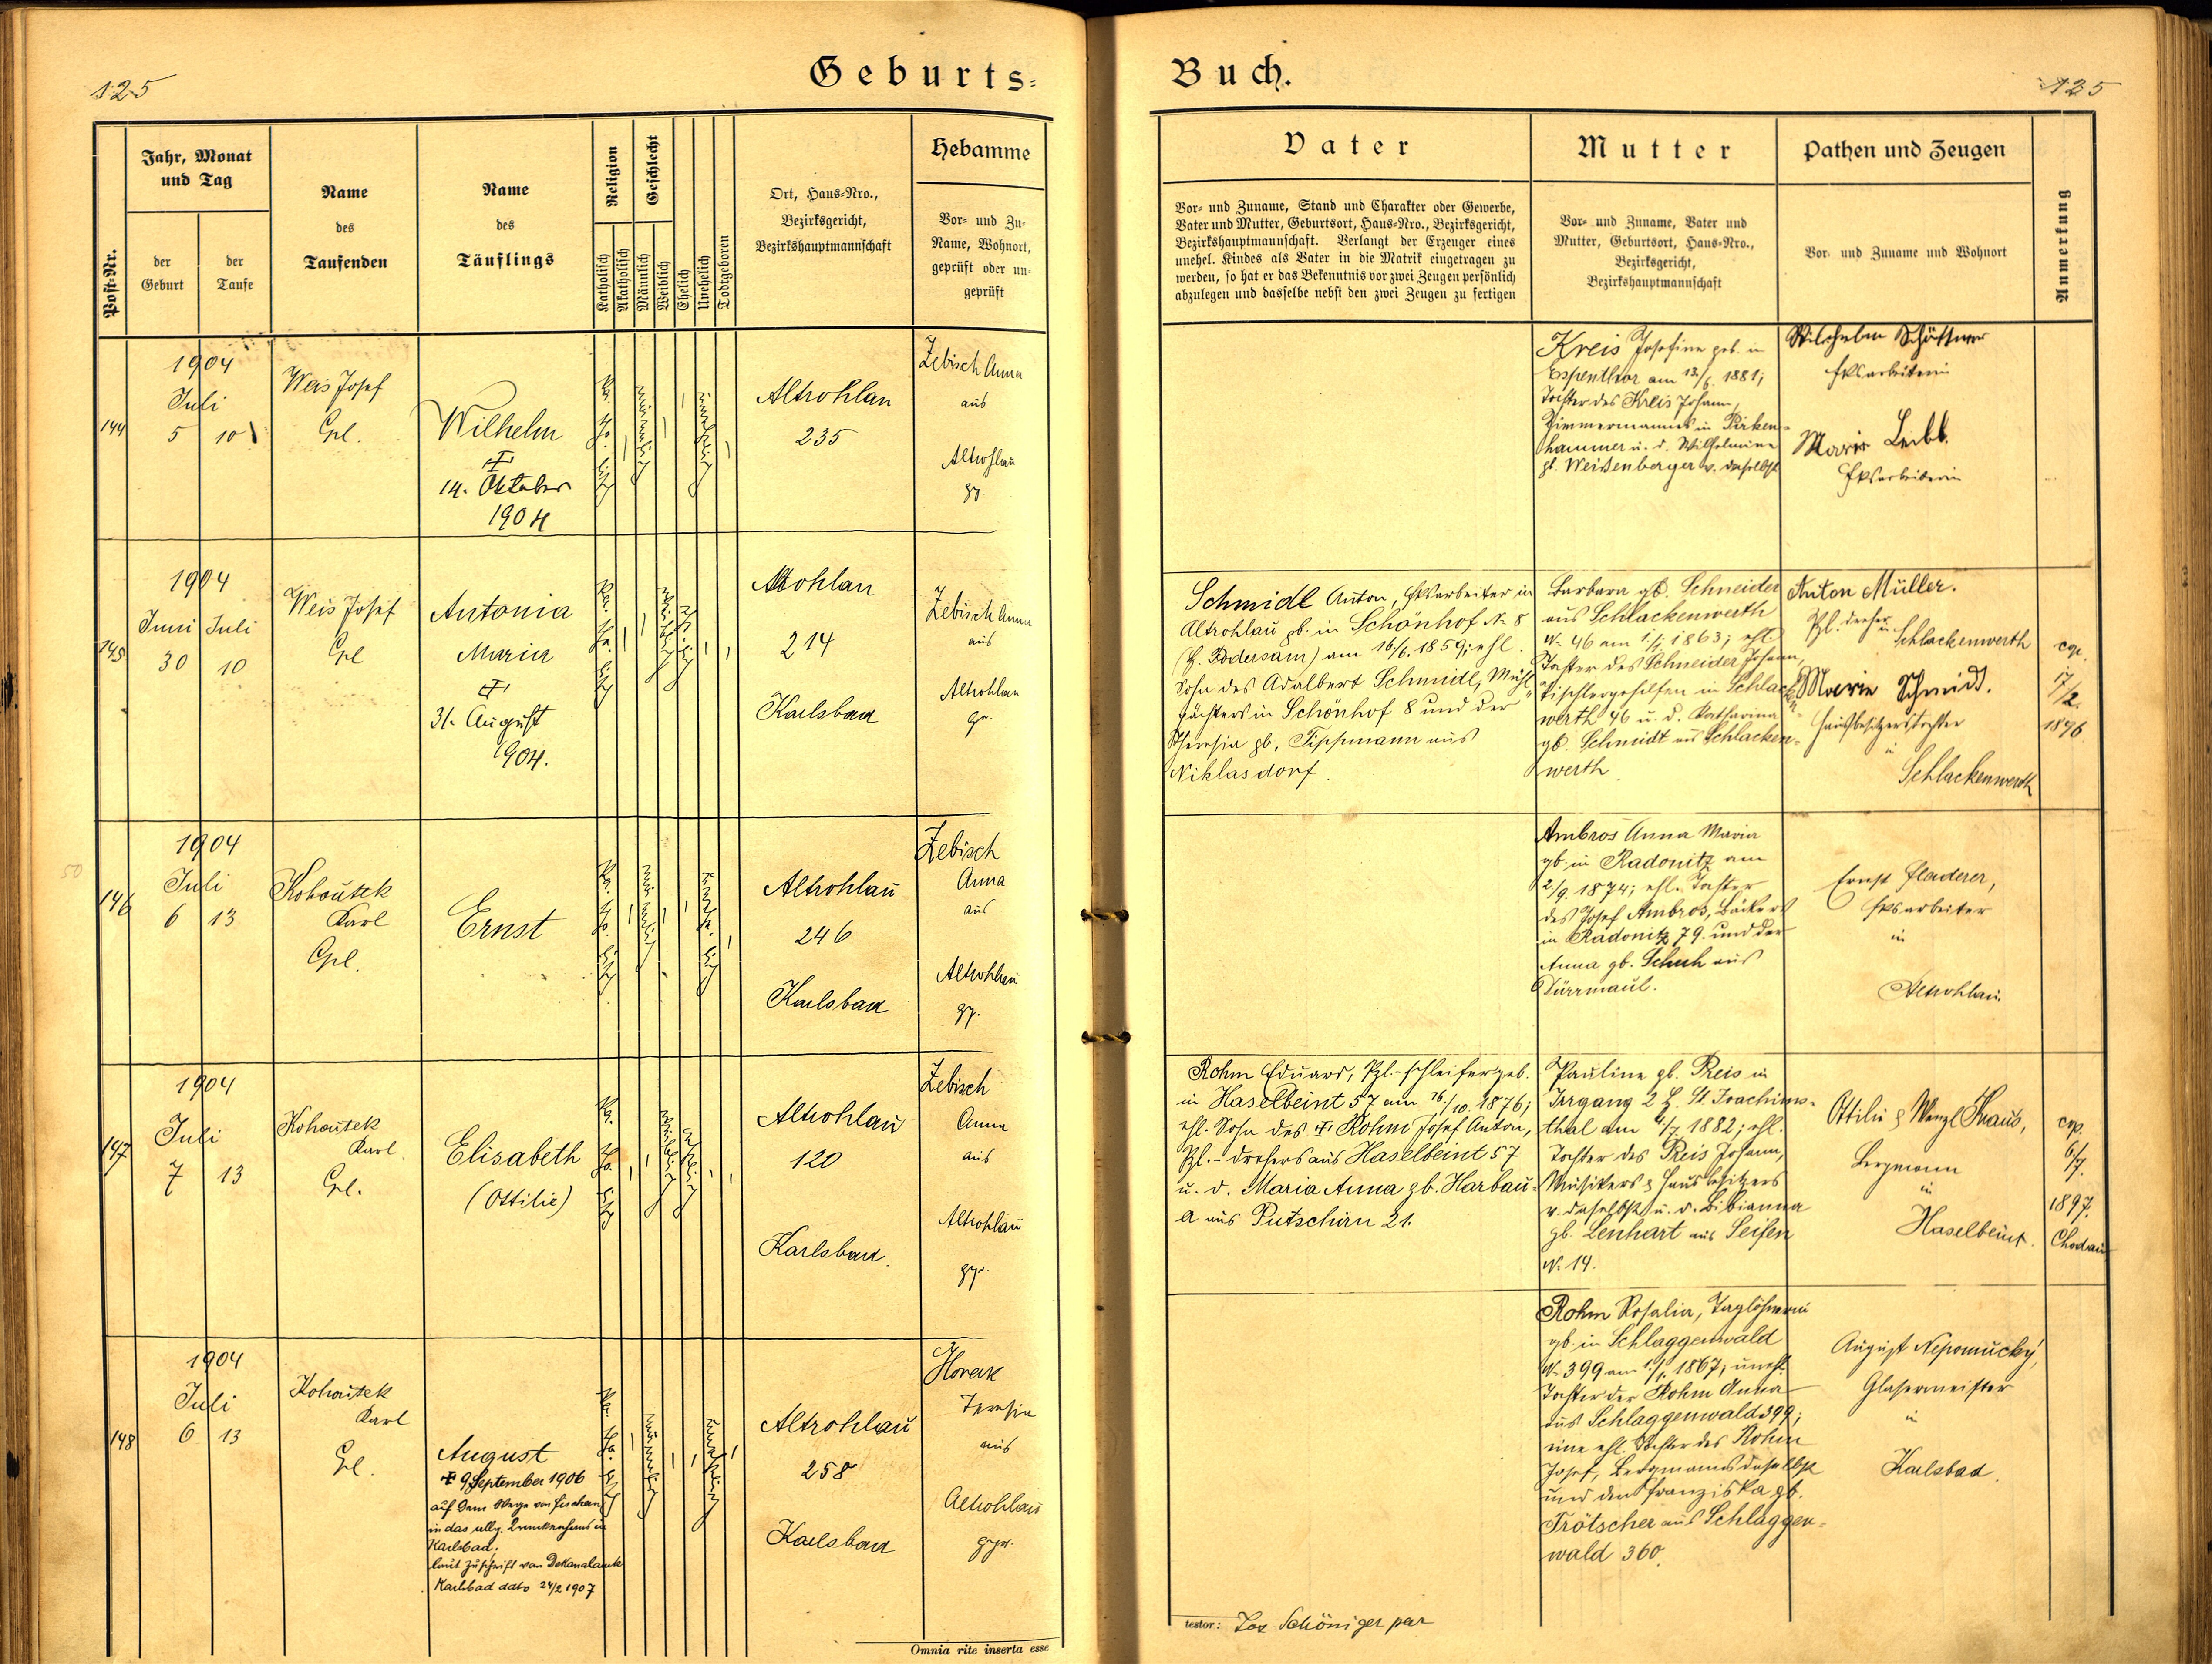 125
Geburts=
Buch.
125
Post-Nr.
Jahr, Monat
und Tag
der
Geburt
der
Taufe
Name
des
Taufenden
Name
des
Täuflings
Religion
Katholisch
Akatholisch
Geschlecht
Männlich
Weiblich
Ehelich
Unehelich
Todtgeboren
Ort, Haus=Nro.,
Bezirksgericht,
Bezirkshauptmannschaft
Hebamme
Vor= und Zu=
Name, Wohnort,
geprüft oder un=
geprüft
Vater
Vor= und Zuname, Stand und Charakter oder Gewerbe,
Vater und Mutter, Geburtsort, Haus=Nro., Bezirksgericht,
Bezirkshauptmannschaft. Verlangt der Erzeuger eines
unehel. Kindes als Vater in die Matrik eingetragen zu
werden, so hat er das Bekenntnis vor zwei Zeugen persönlich
abzulegen und dasselbe nebst den zwei Zeugen zu fertigen
Mutter
Vor= und Zuname, Vater und
Mutter, Geburtsort, Haus=Nro.,
Bezirksgericht,
Bezirkshauptmannschaft
Pathen und Zeugen
Vor= und Zuname und Wohnort
Anmerkung
144
1904
Juli
5 10
Weis Josef
Cpl.
Wilhelm
14. Oktober
1904
Altrohlau
235
Zebisch Anna
aus
Altrohlau
Kreis Josefine geb. in
Espenthor am 12/6. 1881;
Tochter des Kreis Johann,
Zimmermannes in Pirken=
hammer u. d. Wilhelmine
gb. Weißenberger v. daselbst
Wilhelm
Fksarbeiterin
Marie
Fksarbeiterin
145
1904
Juni Juli
30 10
Weis Josef
Cpl
Antonia
Maria
31. August
1904.
Altrohlau
214
Karlsbad
Zebisch Anna
aus
Altrohlau
gr.
Schmidl Anton, Fksarbeiter in
Altrohlau gb. in Schönhof N. 8
(H. Podersam) am 16/6. 1859; ehl.
Sohn des Adalbert Schmidl, Mühl=
pächters in Schönhof 8 und der
Theresia gb. Tippmann aus
Niklasdorf.
Barbara gb. Schneider
aus Schlackenwerth
N. 46 am 1/1. 1863; ehl.
Tochter des Schneider Johann,
Tischlergehilfen in Schlacken=
werth 46 u. d. Katharina
gb. Schmidt aus Schlacken=
werth.
Anton Müller.
Pzl. dreher
in Schlackenwerth
Marie Schmidt.
Hausbesitzerstochter
in
Schlackenwerth
cop.
17/2.
1896
146
1904
Juli
6 13
Kohoutek
Karl
Cpl.
Ernst
Altrohlau
246
Karlsbad
Zebisch
Anna
aus
Altrohlau
gp.
Ambros Anna Maria
gb. in Radonitz am
2/9 1874; ehl. Tochter
des Josef Ambros, Bäckers
in Radonitz 79. und der
Anna gb. Schuh aus
Dürrmaul.
Ernst Fladerer,
Fksarbeiter
in
Altrohlau.
147
1904
Juli
7 13
Kohoutek
Karl
Cpl.
Elisabeth
(Ottilie)
Altrohlau
120
Karlsbad.
Zebisch
Anna
aus
Altrohlau
gp.
Rohm Eduard, Pzl.-schleifer geb.
in Haselbeint 57 am 16./10. 1876;
ehl. Sohn des Rohm Josef Anton,
Pzl.-drehers aus Haselbeint 57
u. d. Maria Anna gb. Harbau=
a aus Putschirn 21.
Pauline gb. Preis in
Irrgang 2 H. St Joachims=
thal am 4/7 1882; ehl.
Tochter des Preis Johann,
Musikers & Hausbesitzers
v. daselbst u. d. Bibianna
gb. Lenhart aus Seifen
N. 14.
Ottilie & Wenzl Knaus,
Bergmann
in
Haselbeint.
cop.
6/7.
1897.
Chodau
148
1904
Juli
6 13
Kohoutek
Karl
Cpl.
August
9 September 1906
auf dem Wege von Fischern
in das allg. Krankenhaus in
Karlsbad.
laut Zuschrift von Dekanalamte
Karlsbad dato 24/2 1907
Altrohlau
258
Karlsbad
Horak
Theresia
aus
Altrohlau
gepr.
Rohm Rosalia, Taglöhnerin
gb. in Schlaggenwald
N. 399 am 1/1. 1867; unehl.
Tochter der Rohm Anna
aus Schlaggenwald 399;
eine ehl. Tochter des Rohm
Josef, Bergmanns daselbst
und der Franziska gb.
Trötscher aus Schlaggen=
wald 360.
August Nepomucký,
Glasermeister
in
Karlsbad.
Omnia rite inserta esse
testor: Jos Schöniger par